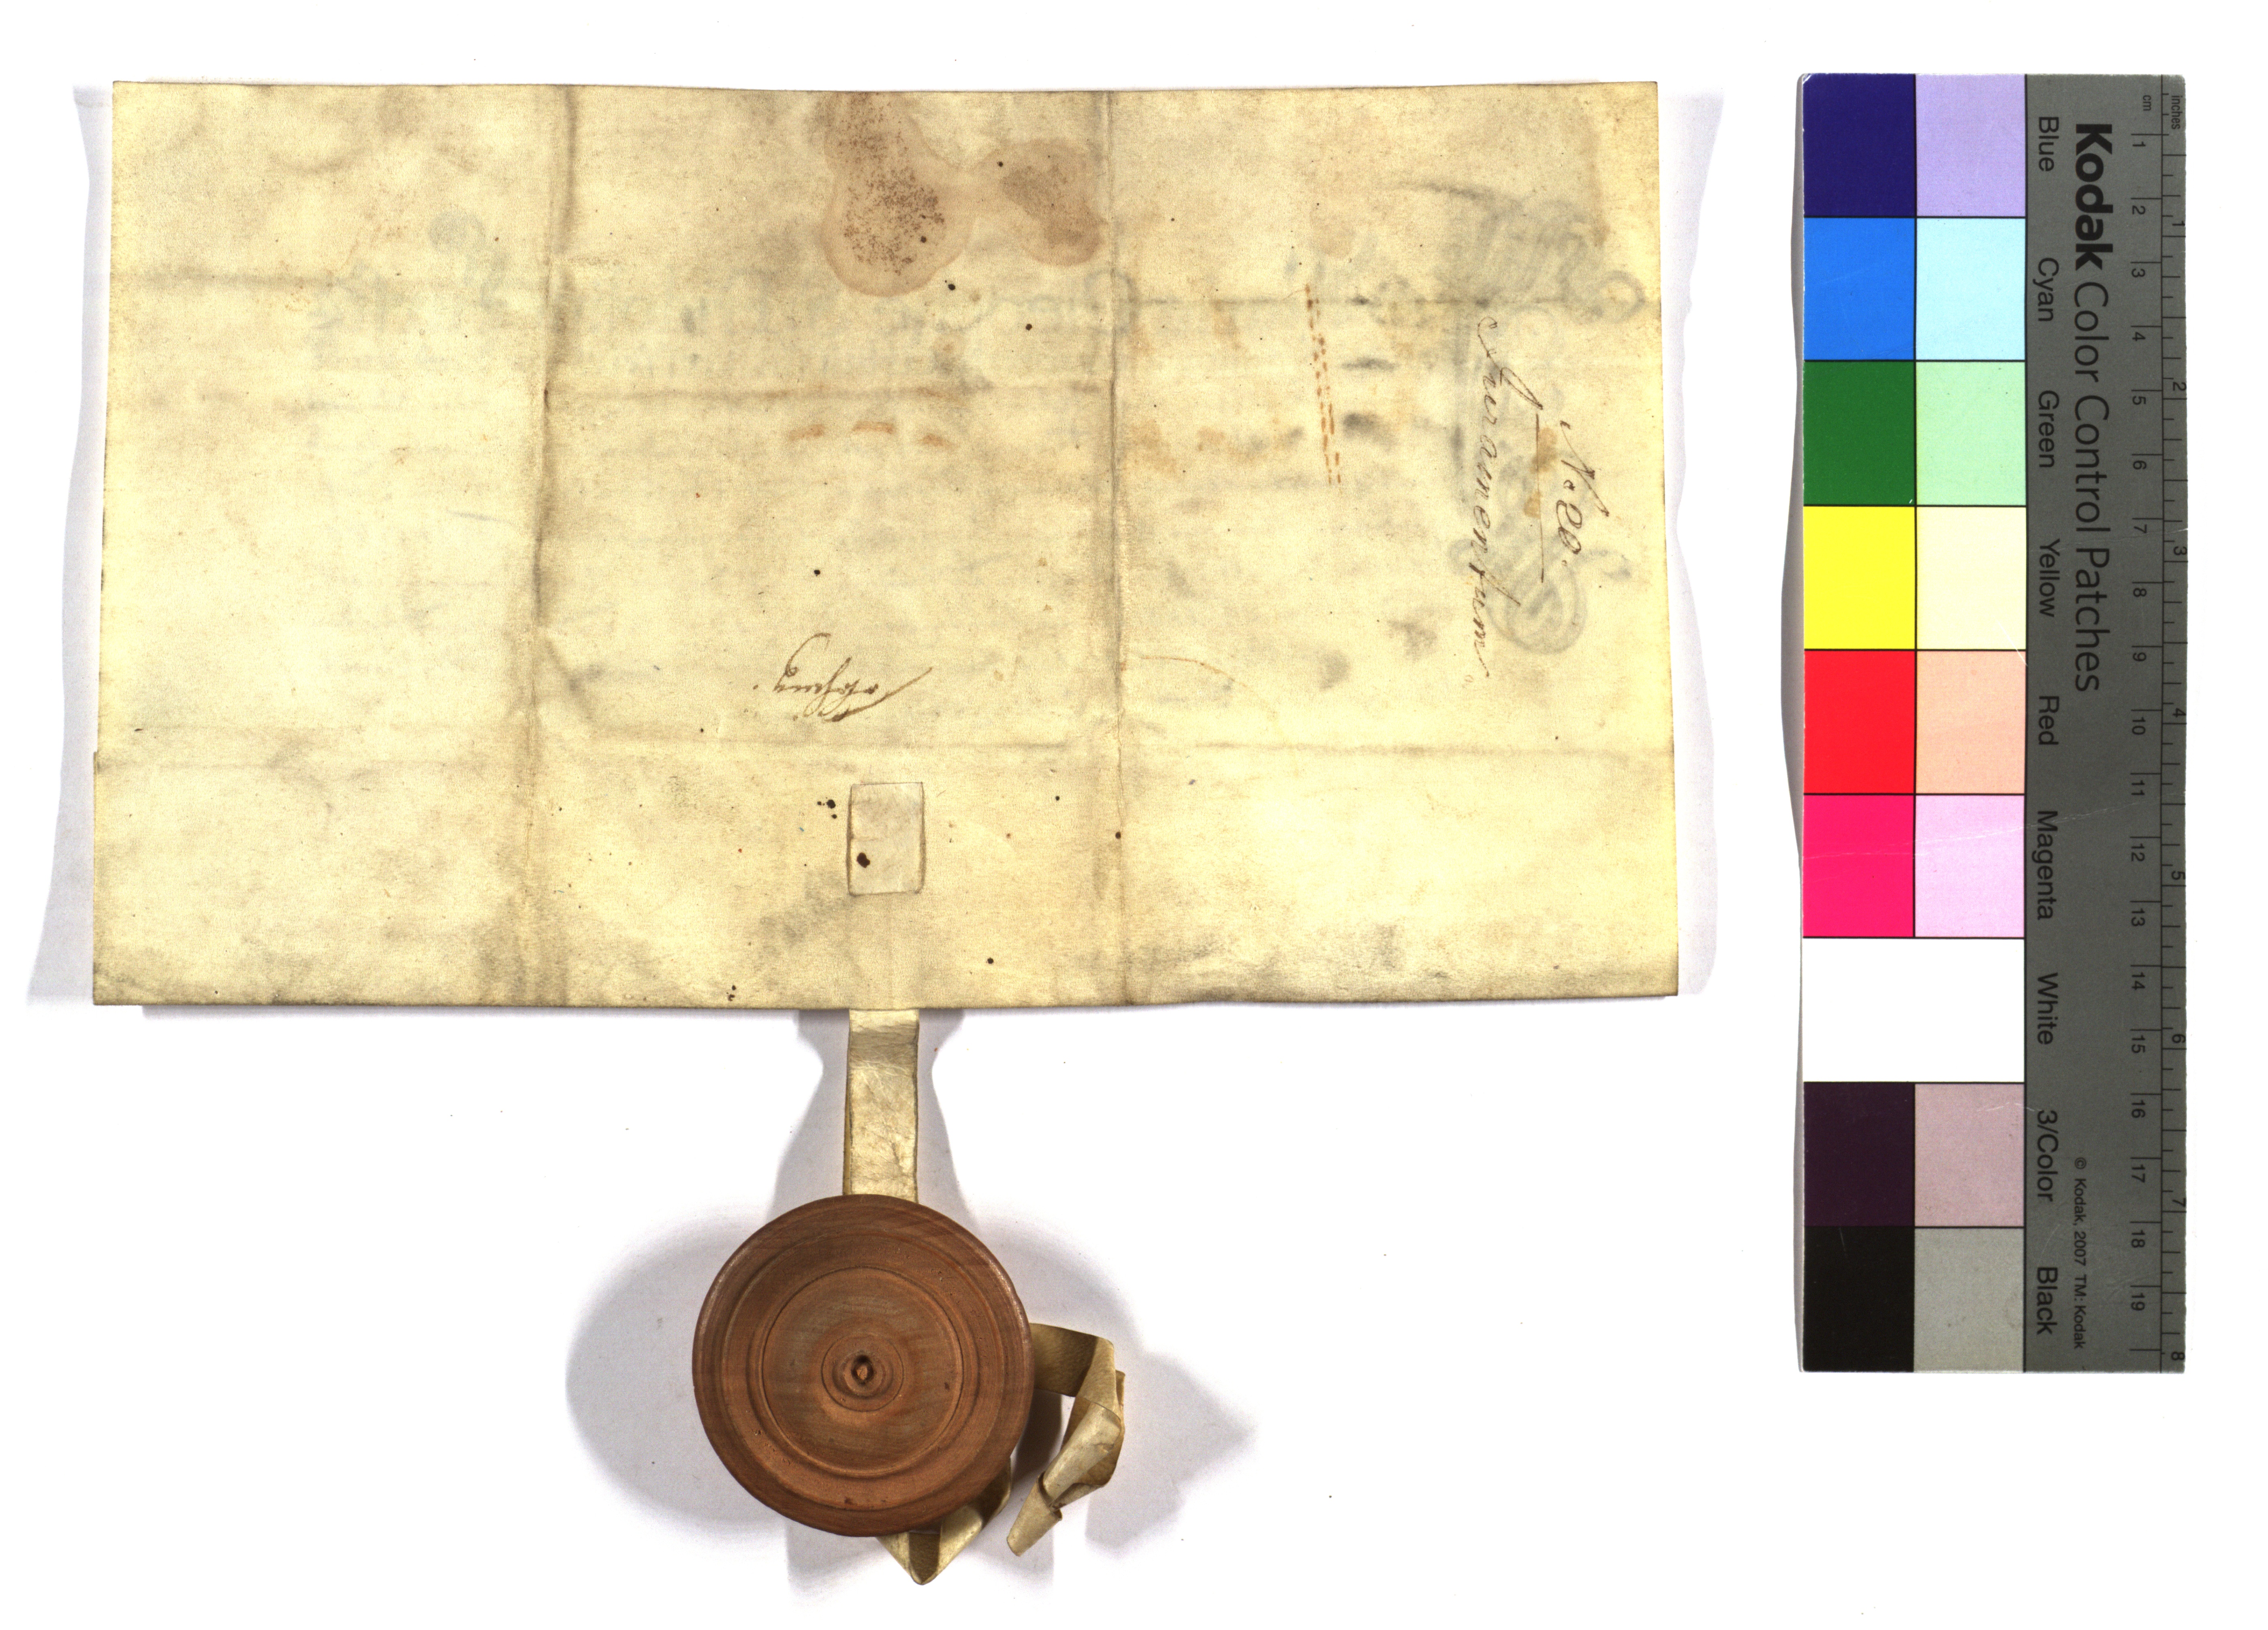 No 20.
Juramentum
Kodak Color Control Patches
Blue Cyan Green Yellow Red Magenta White 3/Color Black
© Kodak, 2007 TM: Kodak
cm 1 2 3 4 5 6 7 8 9 10 11 12 13 14 15 16 17 18 19
inches 1 2 3 4 5 6 7 8